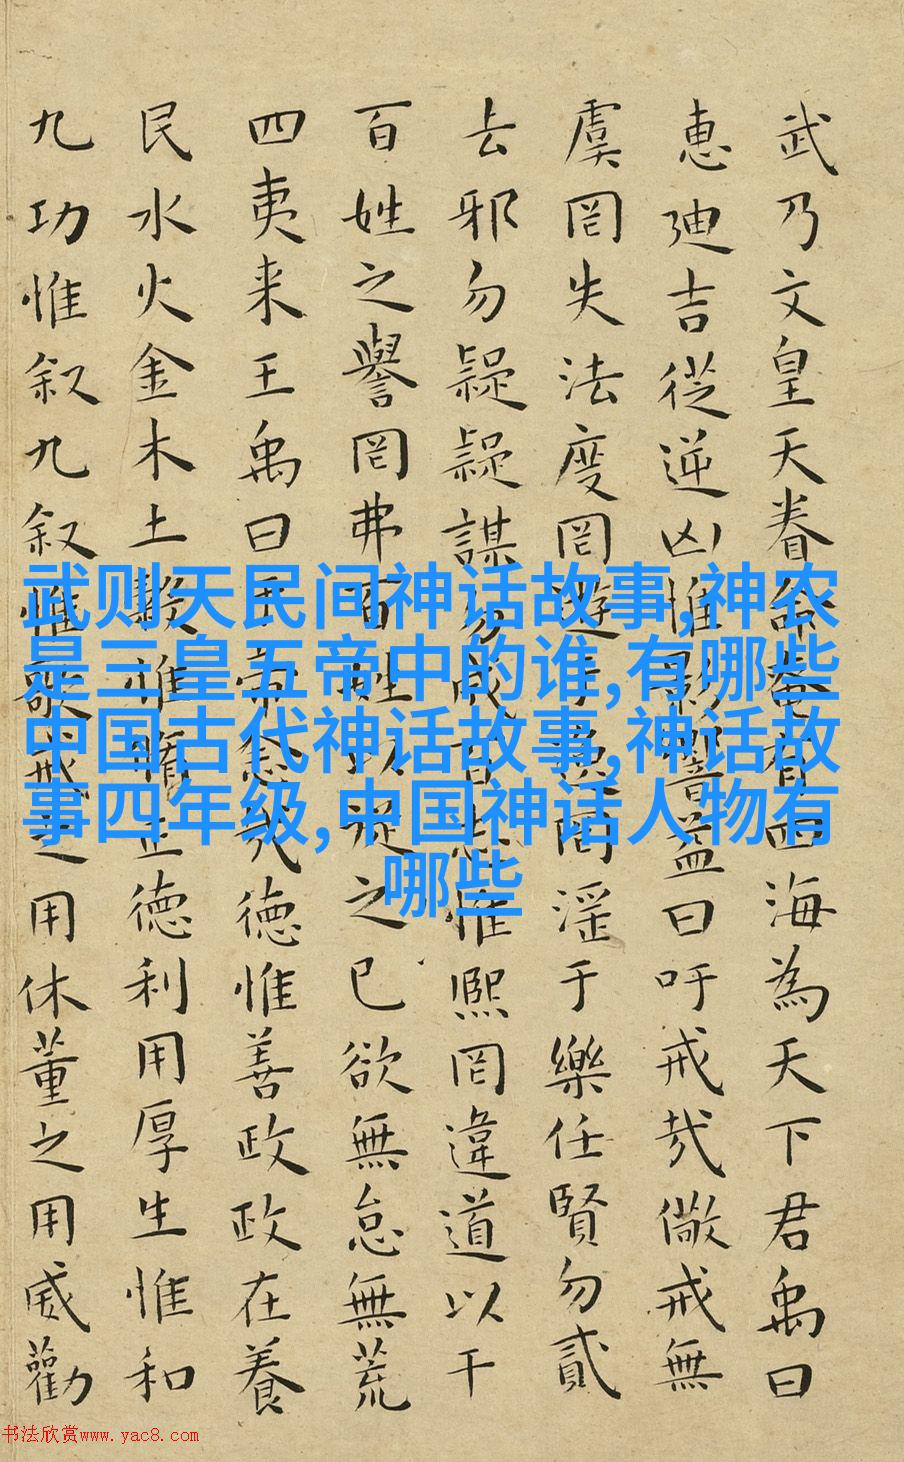 武乃文皇天眷命奄有四海為天下君禹曰
惠迪吉從逆凶惟影響益曰吁戒哉儆戒無
虞罔失法度罔遊于逸罔淫于樂任賢勿貳
去邪勿疑疑謀勿成百志惟熙罔違道以干
百姓之譽罔弗百姓以從之已欲無怠無荒
四夷来王禹曰帝念哉德惟善政政在養
民水火金木土穀惟脩正德利用厚生惟和
九功惟叙九叙惟歌戒之用休董之用威勸
武则天民间神话故事,神农
是三皇五帝中的谁,有哪些
中国古代神话故事,神话故
事四年级,中国神话人物有
哪些
书法欣赏www.yac8.com